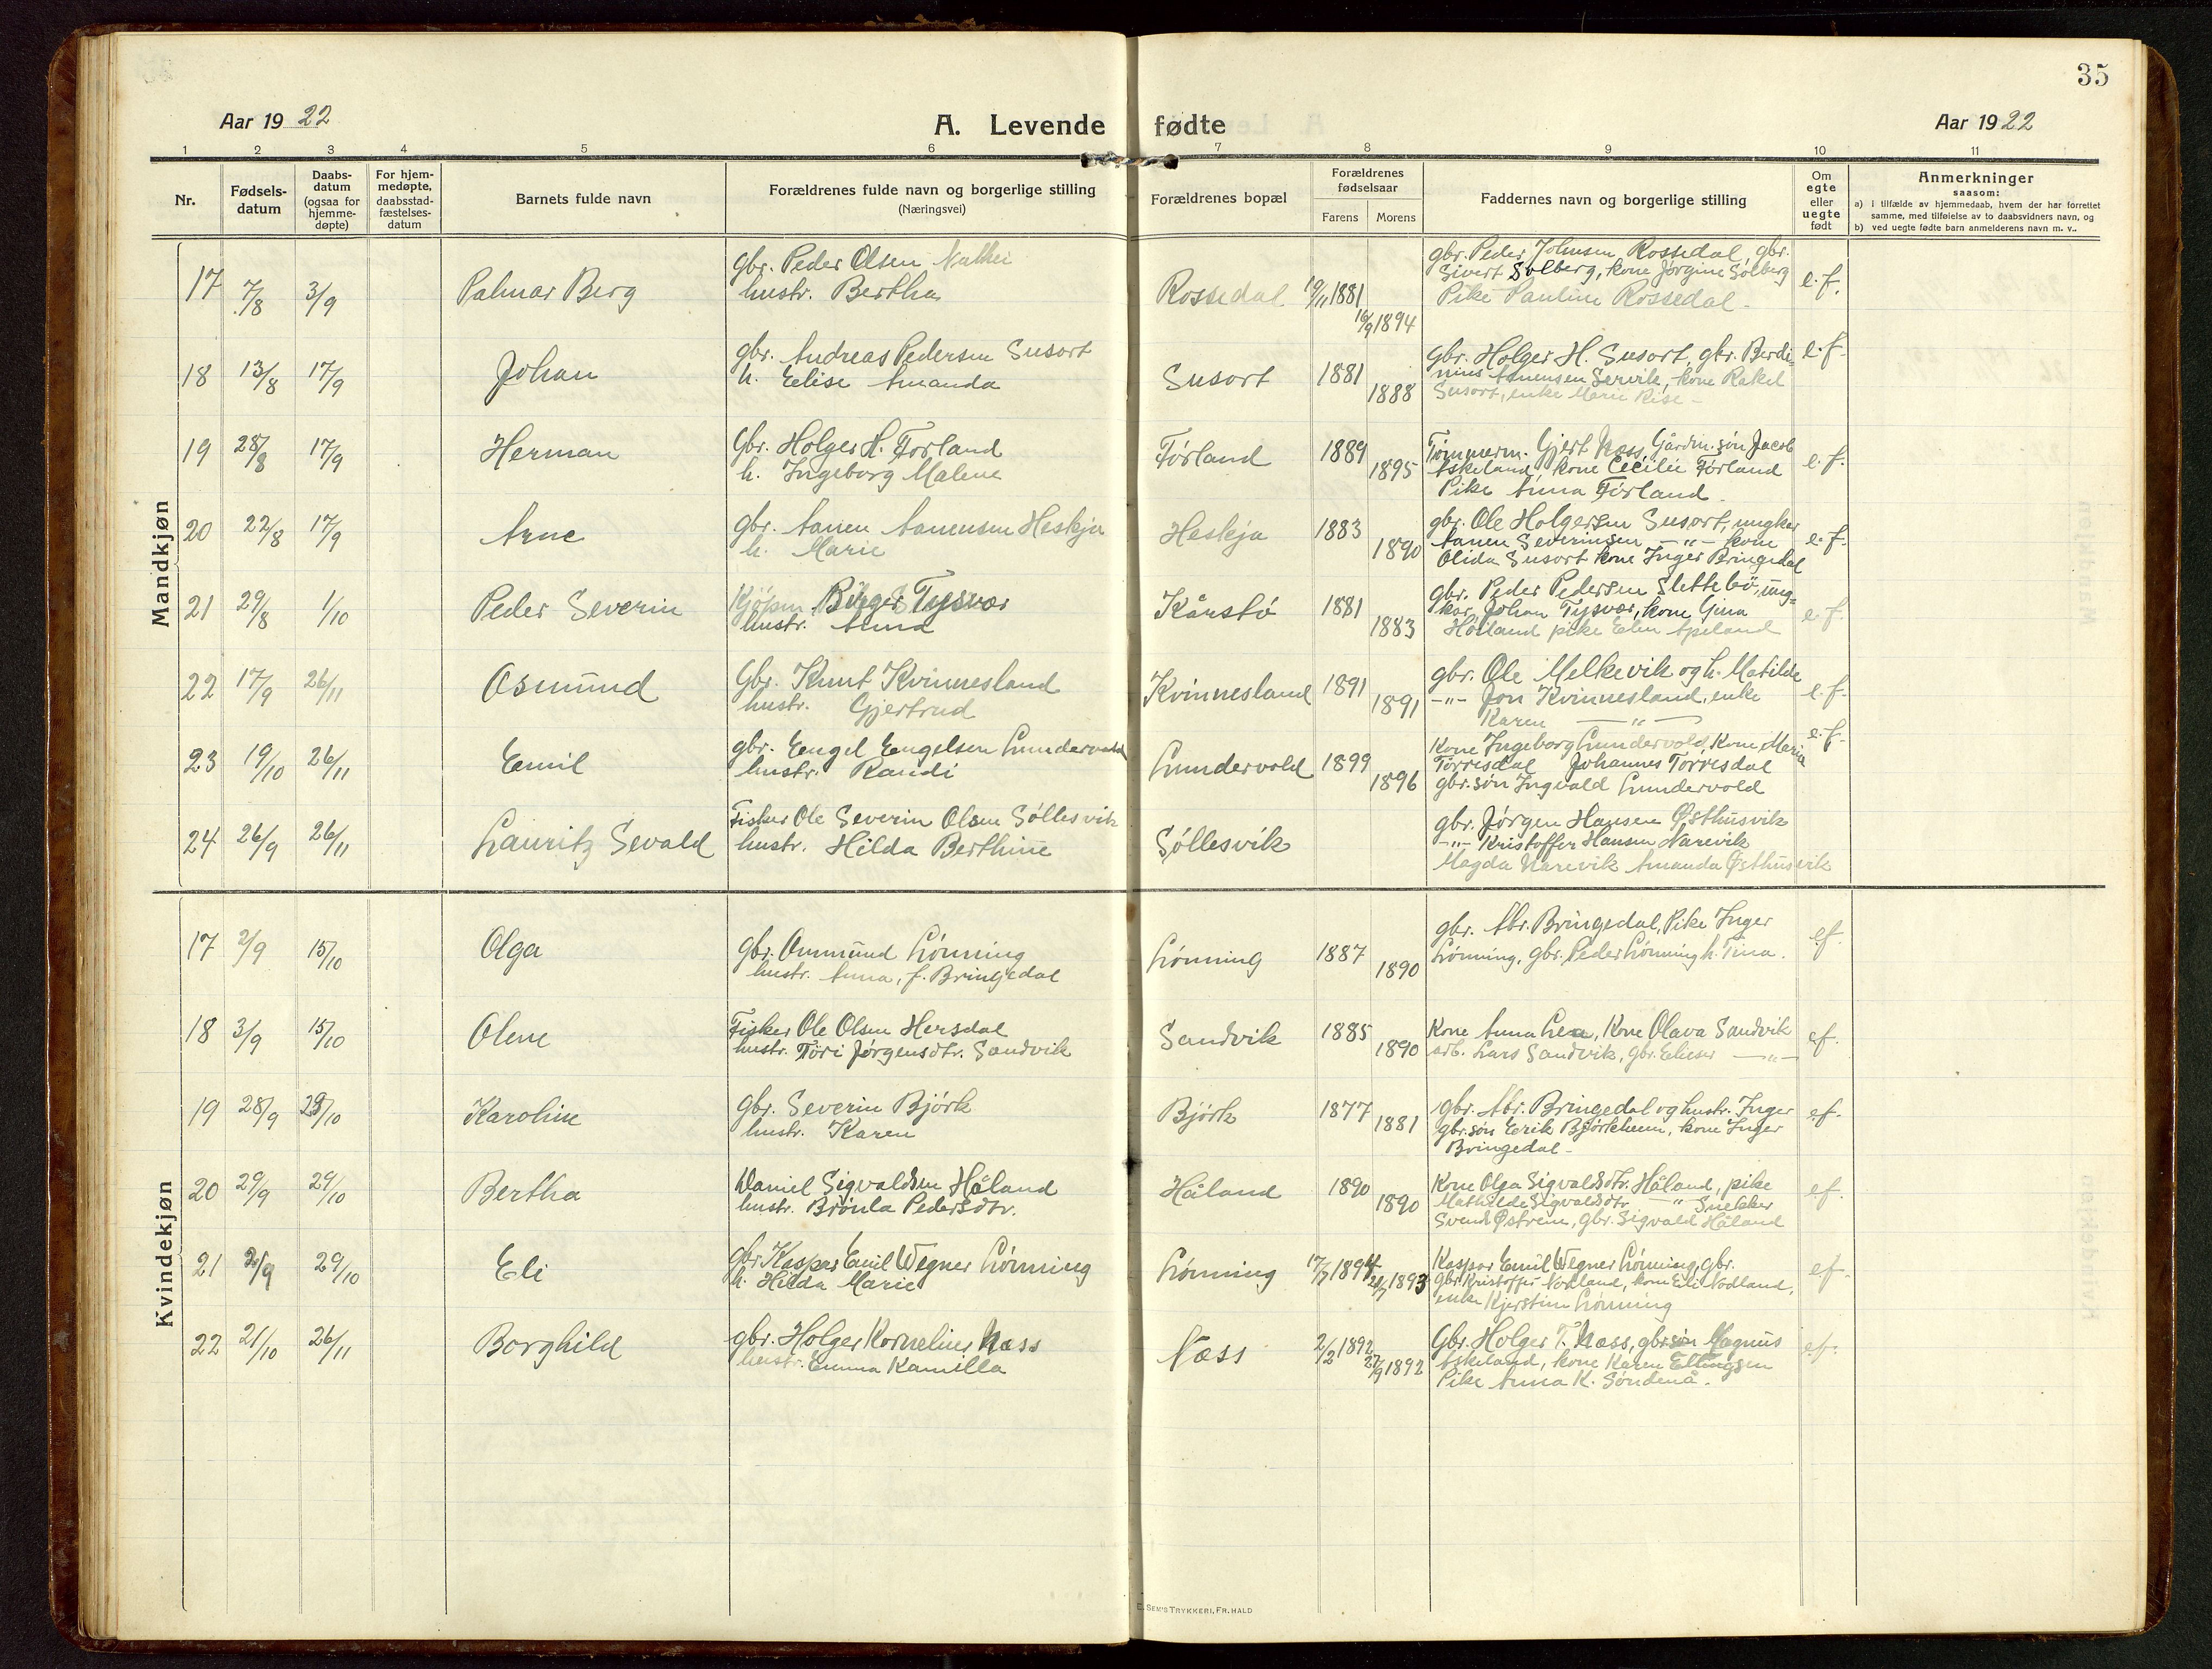 35
Aar 1922
A. Levende fødte
Aar 1922
1 2 3 4 5 6 7 8 9 10 11
Nr.
Fødsels-
datum
Daabs-
datum
(ogsaa for
hjemme-
døpte)
For hjem-
medøpte,
daabsstad-
fæstelses-
datum
Barnets fulde navn
Forældrenes fulde navn og borgerlige stilling
(Næringsvei)
Forældrenes bopæl
Forældrenes
fødselsaar
Farens Morens
Faddernes navn og borgerlige stilling
Om
egte
eller
uegte
født
Anmerkninger
saasom:
a) i tilfælde av hjemmedaab, hvem der har forrettet
samme, med tilføielse av to daabsvidners navn, og
b) ved uegte fødte barn anmelderens navn m. v..
Mandkjøn
17 7/8 3/9 Palmar Berg
gbr. Peder Olsen
hustr. Bertha
Rossedal 19/11 1881 16/9 1894
gbr. Peder Johnsen Rossedal, gbr.
Sivert Solberg, kone Jørgine Solberg
Pike Pauline Rossedal -
e.f.
18 13/8 17/9 Johan
gbr. Andreas Pedersen Susort
h. Elise Amanda
Susort 1881 1888
gbr. Holger H. Susort, gbr. Berdi-
nius Amensen Servik, kone Rakel
Susort, enke Marie Rise -
e.f.
19 28/8 17/9 Herman
Gbr. Holger H. Førland
h. Ingeborg Malene
Førland 1889 1895
Tømmerm. Gjert Næss, Gårdm.søn Jacob
Askeland, kone Cecilie Førland
Pike Anna Førland.
e.f.
20 22/8 17/9 Arne
gbr. Aanen Aanensen Heskja
h. Marie
Heskja 1883 1890
gbr. Ole Holgersen Susort, ungkar
Aanen Severinsen -"- kone
Olida Susort kone Inger Bringedal
e.f.
21 29/8 1/10 Peder Severin
Kjøpm. Børge S Tysvær
hustr. Anna
Kårstø 1881 1883
gbr. Peder Pedersen Slettebø, ung-
kar Johan Tysvær, kone Gina
Høiland pike Elen Apeland
e.f.
22 17/9 26/11 Osmund
Gbr. Knut Kvinnesland
hustr. Gjertrud
Kvinnesland 1891 1891
gbr. Ole Melkevik og h. Matilde
-"- Jon Kvinnesland, enke
Karen -"-
e.f.
23 19/10 26/11 Emil
gbr. Engel Engelsen Lundervold
hustr. Randi
Lundervold 1899 1896
Kone Ingeborg Lundervold, Kone Maria
Torrisdal Johannes Torrisdal
gbr.søn Ingvald Lundervold
e.f.
24 26/9 26/11 Lauritz Sevald
Fisker Ole Severin Olsen Søllesvik
hustr. Hilda Berthine
Søllesvik
gbr. Jørgen Hansen Østhusvik
-"- Kristoffer Hansen Narevik
Magda Narevik Amanda Østhusvik
Kvindekjøn
17 2/9 15/10 Olga
gbr. Ommund Lønning
hustr. Anna, f. Bringedal
Lønning 1887 1890
gbr. Abr. Bringedal, Pike Inger
Lønning, gbr. Peder Lønning h. Tina.
ef.
18 3/9 15/10 Olene
Fisker Ole Olsen Hersdal
hustr. Tori Jørgensdtr. Sandvik
Sandvik 1885 1890
Kone Anna Lea, Kone Olava Sandvik
arb. Lars Sandvik, gbr. Elieser -"-
ef.
19 28/9 29/10 Karoline
gbr. Severin Bjørk
hustr. Karen
Bjørk 1877 1881
gbr. Abr. Bringedal og hustr. Inger
gbr.søn Erik Bjørkheim, kone Inger
Bringedal -
ef.
20 29/9 29/10 Bertha
Daniel Sigvaldsen Håland
hustr. Brønla Pedersdtr.
Håland 1890 1890
Kone Olga Sigvaldsdtr. Håland, pike
Mathilde Sigvaldsdtr. -"- Snekker
Svend Østrem, gbr. Sigvald Håland
ef.
21 /9 29/10 Eli
gbr Kaspar Emil Wegner Lønning
h. Hilda Marie
Lønning 17/7 1894 21/7 1893
Kaspar Emil Wegner Lønning, gbr.
gbr Kristoffer Nødland, kone Eli Nødland,
enke Kjerstine Lønning
ef.
22 21/10 26/11 Borghild
gbr. Holger Kornelius Næss
hustr. Emma Kamilla
Næss 2/2 1892 27/9 1892
Gbr. Holger T. Næss, gbrsøn Magnus
Askeland, kone Karen Ellingsen
Pike Anna K. Søndenå.
ef.
E. SEM'S TRYKKERI, FR.HALD